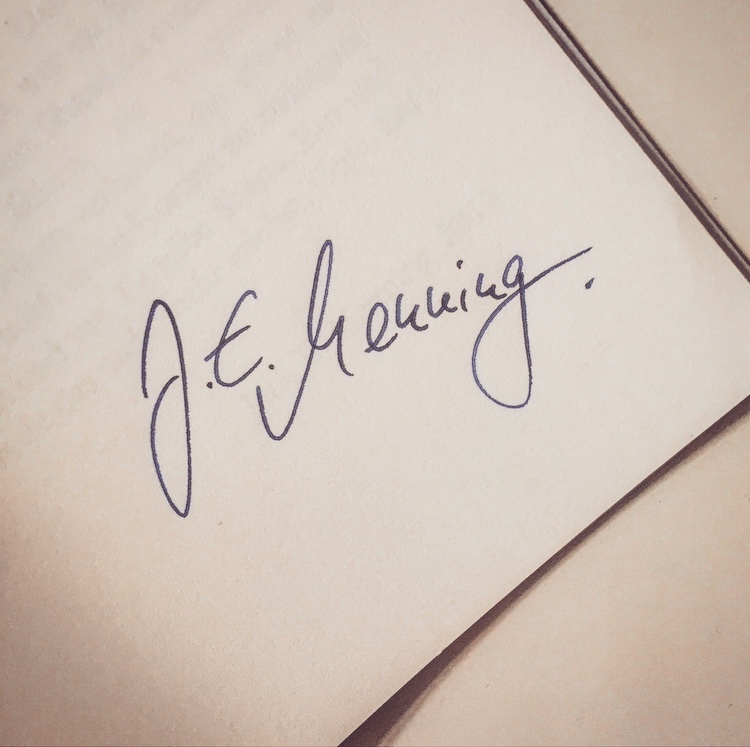 J.E. Henning.